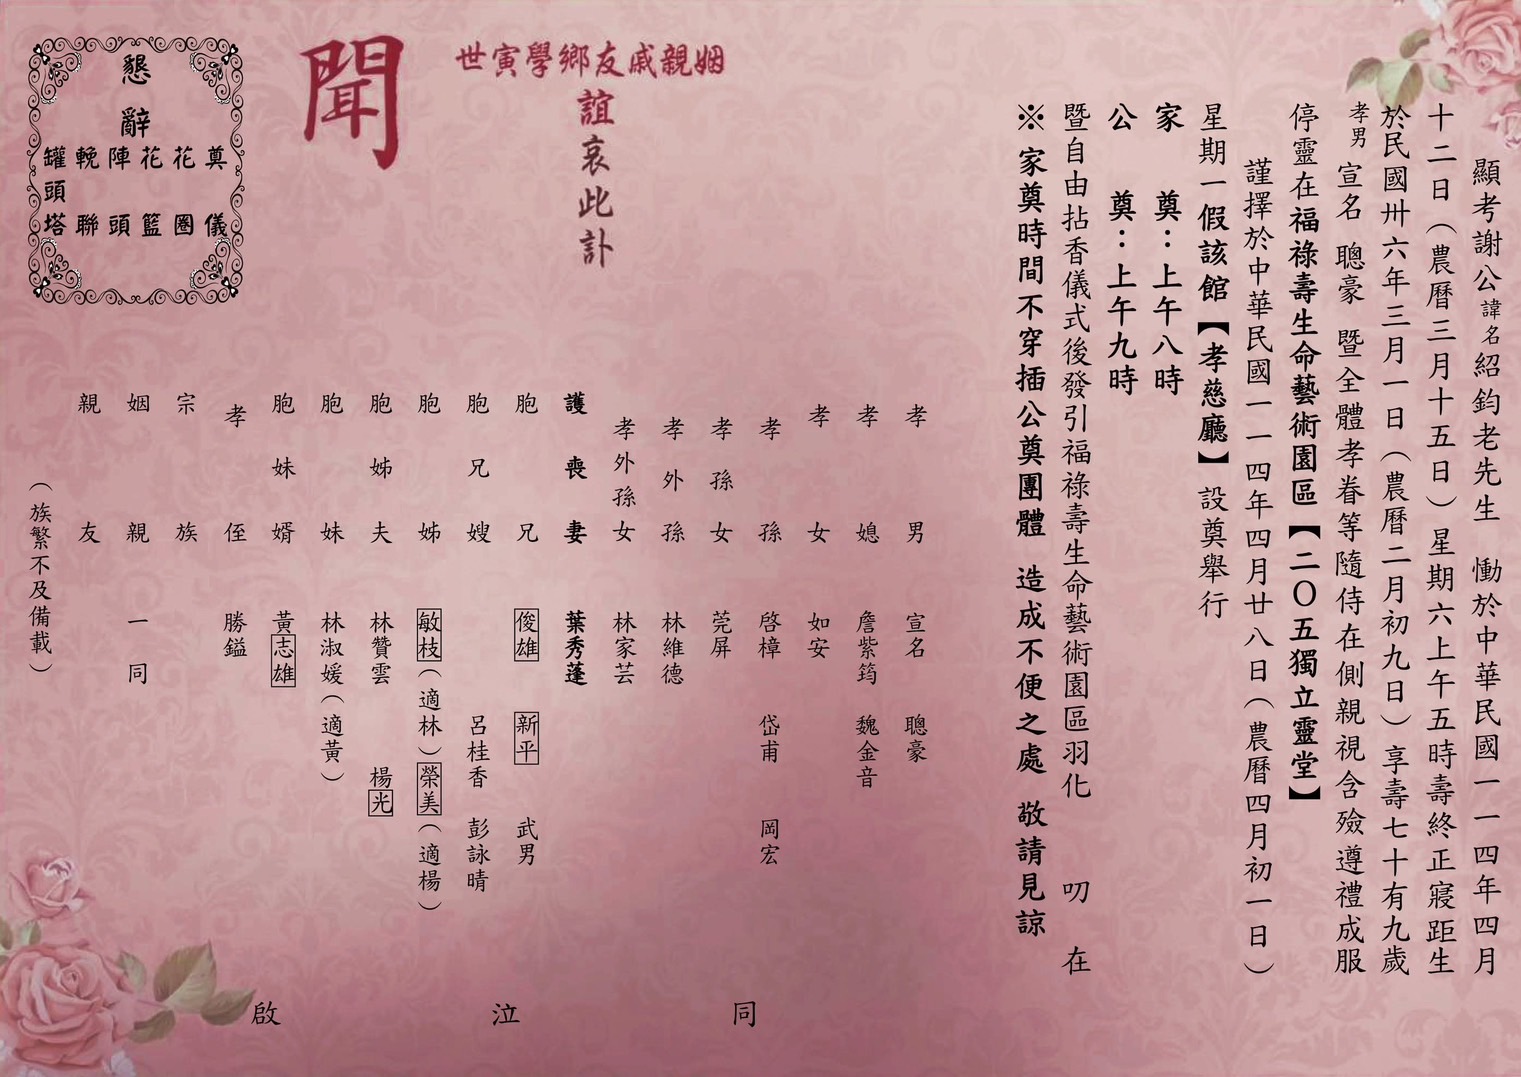 顯考謝公諱名紹鈞老先生 慟於中華民國一一四年四月
十二日（農曆三月十五日）星期六上午五時壽終正寢距生
於民國卅六年三月一日（農曆二月初九日）享壽七十有九歲
孝男 宣名 聰豪 暨全體孝眷等隨侍在側親視含殮遵禮成服
停靈在福祿壽生命藝術園區【二〇五獨立靈堂】
謹擇於中華民國一一四年四月廿八日（農曆四月初一日）
星期一假該館【孝慈廳】設奠舉行
家 奠：上午八時
公 奠：上午九時
暨自由拈香儀式後發引福祿壽生命藝術園區羽化 叨 在
※家奠時間不穿插公奠團體 造成不便之處 敬請見諒
姻親戚友鄉學寅世
誼哀此訃
聞
孝男 宣名 聰豪
孝媳 詹紫筠 魏金音
孝女 如安
孝孫 啓樟 岱甫 岡宏
孝孫女 莞屏
孝外孫 林維德
孝外孫女 林家芸
護喪妻 葉秀蓬
胞兄 俊雄 新平 武男
胞兄嫂 呂桂香 彭詠晴
胞姊 敏枝（適林）榮美（適楊）
胞姊夫 林贊雲 楊光
胞妹 林淑媛（適黃）
胞妹婿 黃志雄
孝侄 勝鎰
宗族
姻親 一同
親友
（族繁不及備載）
同 泣 啟
懇辭
奠儀
花圈
花籃
陣頭
輓聯
罐頭塔